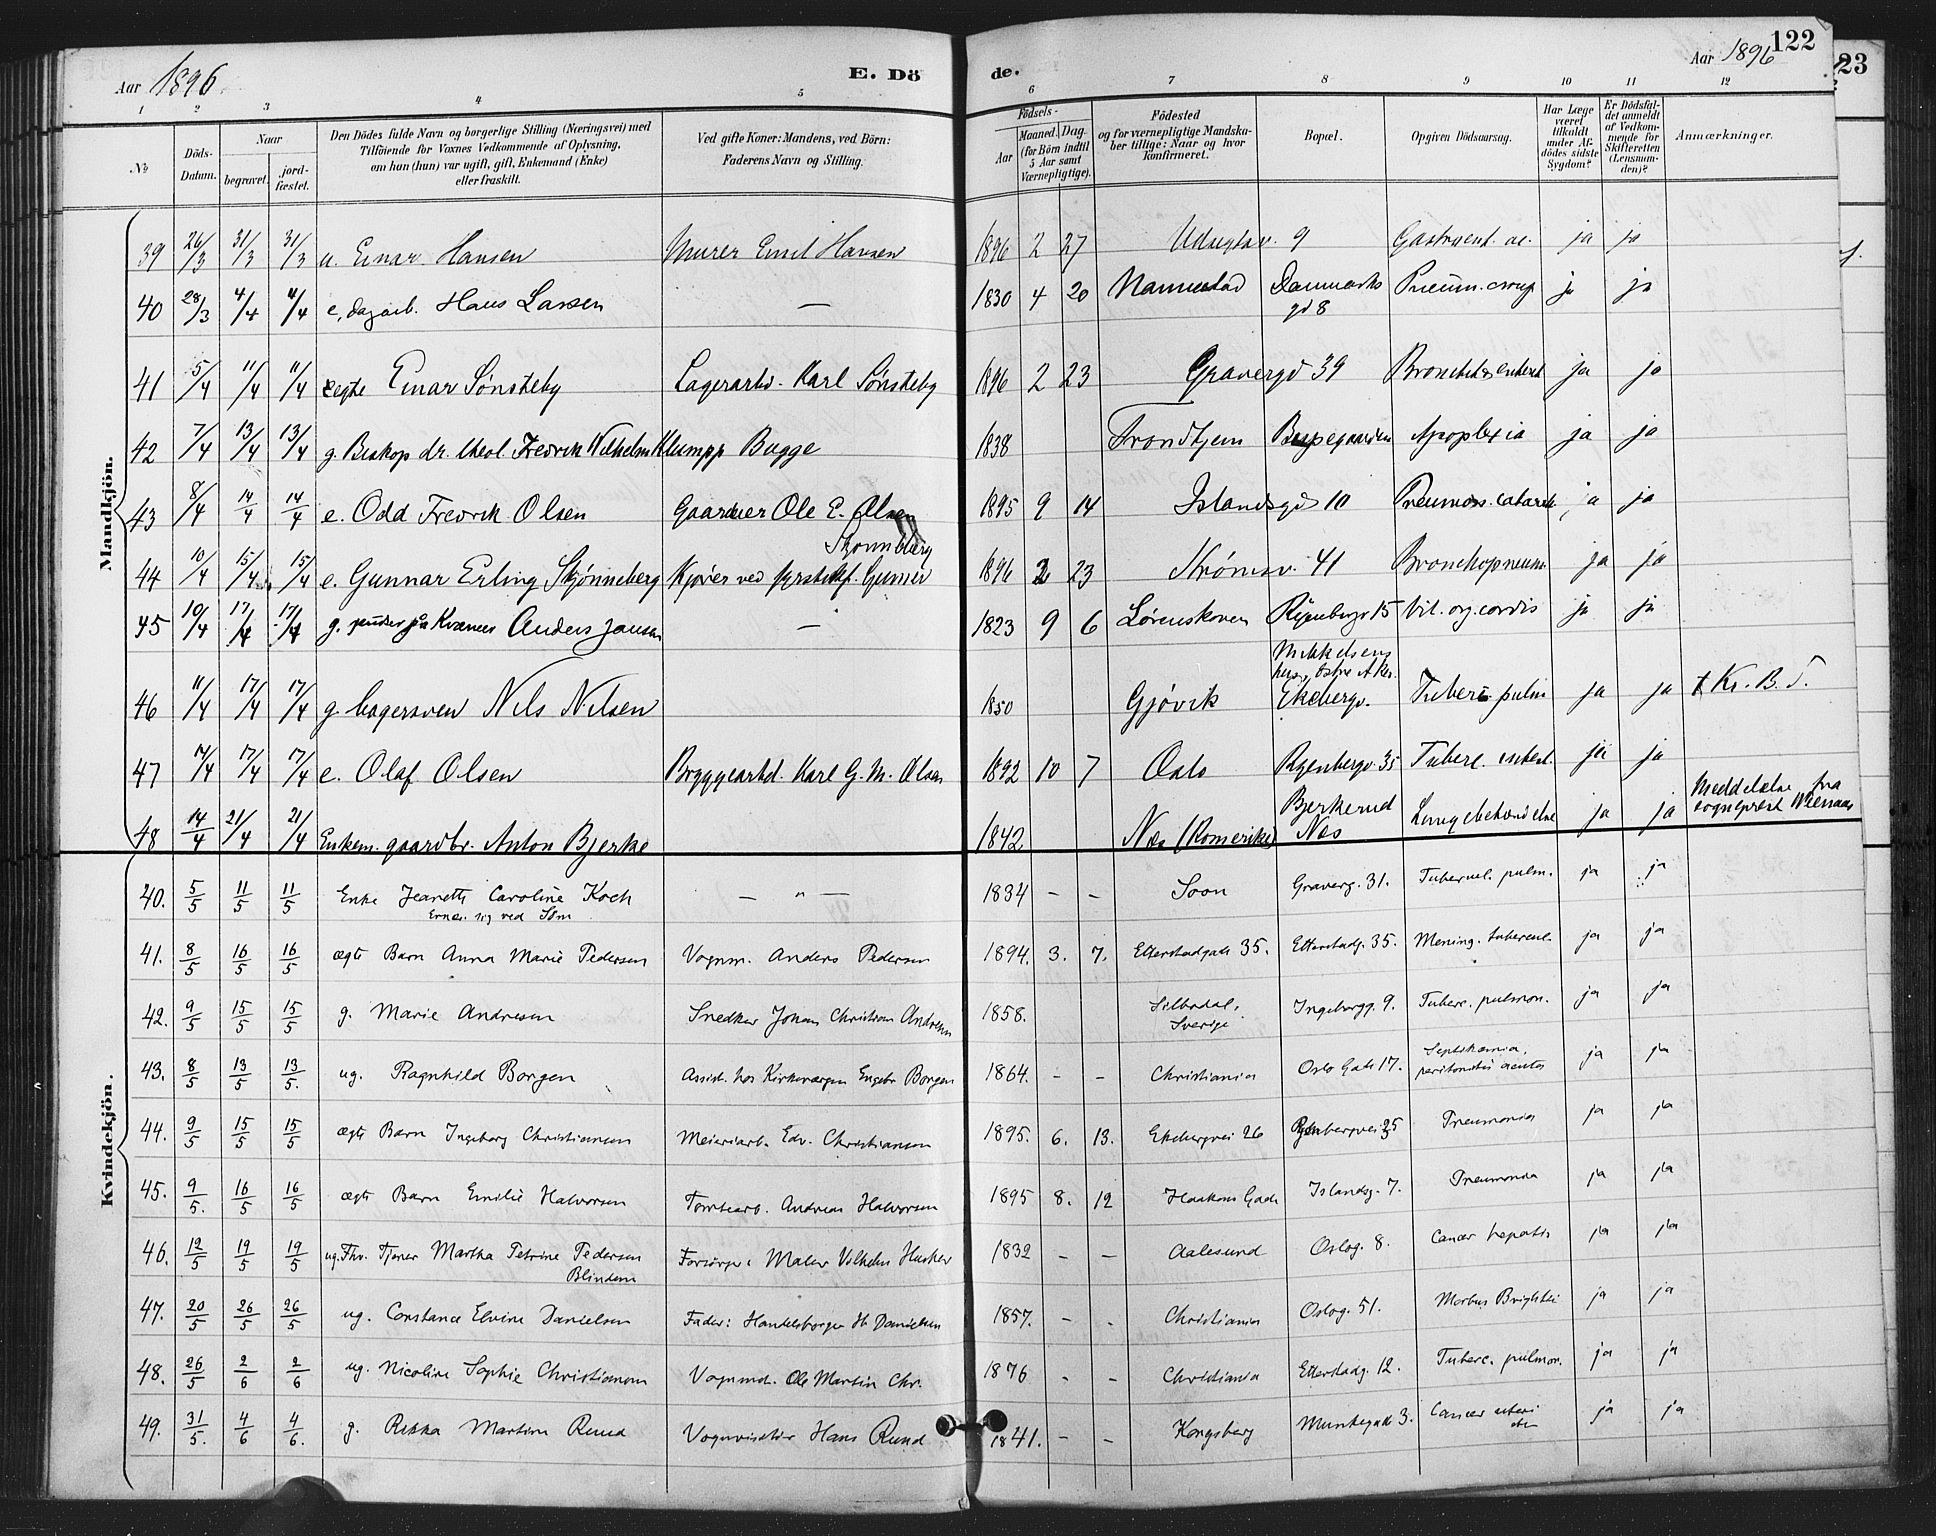 Aar 1896. E. Dö de. Aar 1896 122
23
1 2 3 4 5 6 7 8 9 10 11 12
No Döds-Datum. Naar begravet. jord-fæstet. Den Dödes fulde Navn og borgerlige Stilling (Næringsvei) med Tilföiende for Voxnes Vedkommende af Oplysning, om hun (hun) var ugift, gift, Enkemand (Enke) eller fraskilt. Ved gifte Koner: Mandens, ved Börn: Faderens Navn og Stilling. Födsels- Aar Maaned. Dag. (for Börn indtil 5 Aar samt Værnepligtige). Födested og for værnepligtige Mandskaber tillige: Naar og hvor konfirmeret. Bopæl. Opgiven Dödsaarsag. Har Læge været tilkaldt under Afdödes sidste Sygdom? Er Dödsfaldet anmeldt af Vedkommende for Skifteretten (Lensmanden)? Anmærkninger.
Mandkjön.
39 26/3 31/3 31/3 u. Einar Hansen Murer Emil Hansen 1896 2 27 9 Gastroent. ac. ja ja
40 28/3 4/4 4/4 e, dagarb. Hans Larsen — 1830 4 20 Nannestad Danmarks gd 8 Pneum. crup ja ja
41 5/4 11/4 11/4 ægte Einar Sønsteby Lagerarb. Karl Sønsteby 1896 2 23 Gravergd 39 ja ja
42 7/4 13/4 13/4 g. Biskop dr. theol. Fredrik Wilhelm Klumpp Bugge 1838 Trondhjem Bispegaarden Apoplexia ja ja
43 8/4 14/4 14/4 e. Odd Fredrik Olsen Gaardeier Ole E. Olsen 1895 9 14 Islandsgd 10 ja ja
44 10/4 15/4 15/4 e. Gunnar Erling Skjønneberg Kjører ved Gunner Skjønneberg 1896 2 23 Strømsv. 41 Bronchopneum. ja ja
45 10/4 17/4 17/4 g. Anders Jansen — 1823 9 6 Lørenskoven Ryenbergv 15 Vit. org. cordis ja ja
46 11/4 17/4 17/4 g. Nils Nilsen 1850 Gjøvik Mikkelsens hus, Østre Aker. Ekebergv. Tuberc. pulm ja ja † Kr. B. S.
47 14/4 17/4 17/4 e. Olaf Olsen Bryggearbd. Karl G. M. Olsen 1892 10 7 Oslo Ryenbergv. 35 Tuberc. ja ja
48 14/4 21/4 21/4 Enkem. gaardbr. Anton Bjerke 1842 Næs (Romerike) Bjerkerud Næs Lungebetændelse ja ja Meddelelse fra sogneprest
Kvindekjön.
40. 5/5 11/5 11/5 Enke Jeanette Caroline Koch — " — 1834 – – Soon Graverg. 31. Tubercul. pulm. ja ja
Ernær. sig ved Søm
41. 8/5 16/5 16/5 ægte Barn Anna Marie Pedersen Vognm. Anders Pedersen 1894. 3. 7. Etterstadgade 35. Etterstadg. 35. Mening. tubercul. ja ja
42. 9/5 15/5 15/5 g. Marie Andresen Snedker Johan Christian Andresen 1858. Silbodal, Sverige Ingeborgg. 9. Tuberc. pulmon. ja ja
43. 8/5 13/5 13/5. ug. Ragnhild Borgen Assist. hos Kirkeværgen Engebr. Borgen 1864. – – Christiania Oslo Gade 17. Septikæmia, peritonitis acuta ja ja
44. 9/5 15/5 15/5 ægte Barn Ingeborg Christiansen Meieriarb. Edv. Christiansen 1895. 6. 13. Ekebergvei 26 Ryenbergvei 25 Pneumonia ja ja
45. 9/5. 16/5 16/5 ægte Barn Emilie Halvorsen Tomtearb. Andreas Halvorsen 1895 8. 12 Haakons Gade Islandsg. 7. Pneumonia ja ja
46. 12/5 19/5 19/5 ug. Fhv. Tjener Martha Petrine Pedersen Blindern Forsørger: Maler Vilhelm 1832 – – Aalesund Oslog. 8. Cancer hepatis ja ja
47. 20/5 26/5 26/5 ug. Constance Elvine Danielsen Fader: Handelsborger H. Danielsen 1857. – - Christiania Oslog. 51. Morbus Brightii ja ja
48. 26/5 2/6 2/6 ug. Nicoline Sophie Christiansen Vognmd. Ole Martin Chr. 1876 – - Christiania Etterstadg. 12. Tuberc. pulmon. ja ja
49. 31/5. 4/6 4/6. g. Rikka Martine Ruud Vognvisitør Hans Ruud 1841. – – Kongsberg Munkegade 3. Cancer uteri ja ja